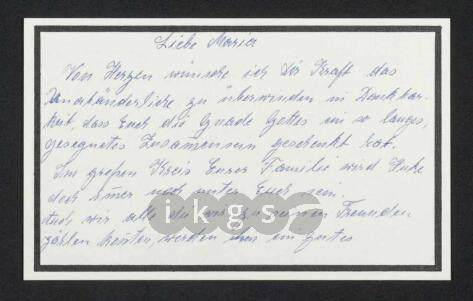 Liebe Maria
Von Herzen wünsche ich Dir Kraft das
Unabänderliche zu überwinden in Dankbar-
keit, dass Euch die Gnade Gottes ein so langes,
gesegnetes Zusammensein geschenkt hat.
Im großen Kreis Eurer Familie wird
doch immer noch unter Euch sein.
Auch wir alle die wir zu seinen Freunden
zählen konnten, werden ihm ein gutes
ikgs